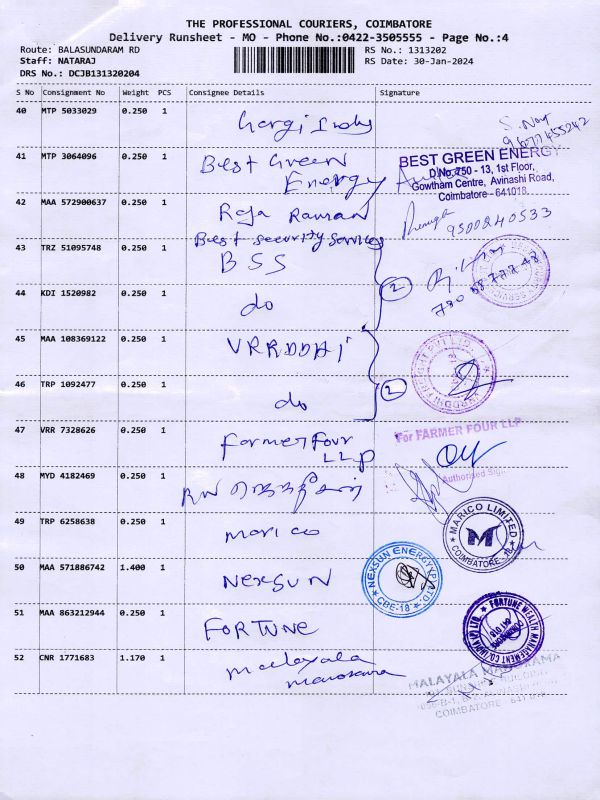 THE PROFESSIONAL COURIERS, COIMBATORE
Delivery Runsheet - MO - Phone No.:0422-3505555 - Page No.:4
Route: BALASUNDARAM RD RS No.: 1313202
Staff: NATARAJ RS Date: 30-Jan-2024
DRS No.: DCJB131320204
S No Consignment No Weight PCS Consignee Details Signature
40 MTP 5033029 0.250 1
S. Nat
9677455242
41 MTP 3064096 0.250 1 Best Green
Energy
BEST GREEN ENERGY
D.No.750 - 13, 1st Floor,
Gowtham Centre, Avinashi Road,
Coimbatore - 641018.
42 MAA 572900637 0.250 1 Raja Raman
9500240533
Best security services
43 TRZ 51095748 0.250 1 BSS
2
44 KDI 1520982 0.250 1 do
45 MAA 108369122 0.250 1 VRRDDHI
2
46 TRP 1092477 0.250 1 do
47 VRR 7328626 0.250 1 Farmer Four
LLP
For FARMER FOUR LLP
Authorised Sign
48 MYD 4182469 0.250 1 RW
49 TRP 6258638 0.250 1 marico
MARICO LIMITED
M
COIMBATORE - 18
50 MAA 571886742 1.400 1 NEXSUN
NEXSUN ENERGY (P) LTD
CBE-18
51 MAA 863212944 0.250 1 FORTUNE
FORTUNE WEALTH MANAGEMENT CO. (INDIA) P LTD
COIMBATORE
641 018
52 CNR 1771683 1.170 1 malayala
manorama
MALAYALA MANORAMA
COIMBATORE